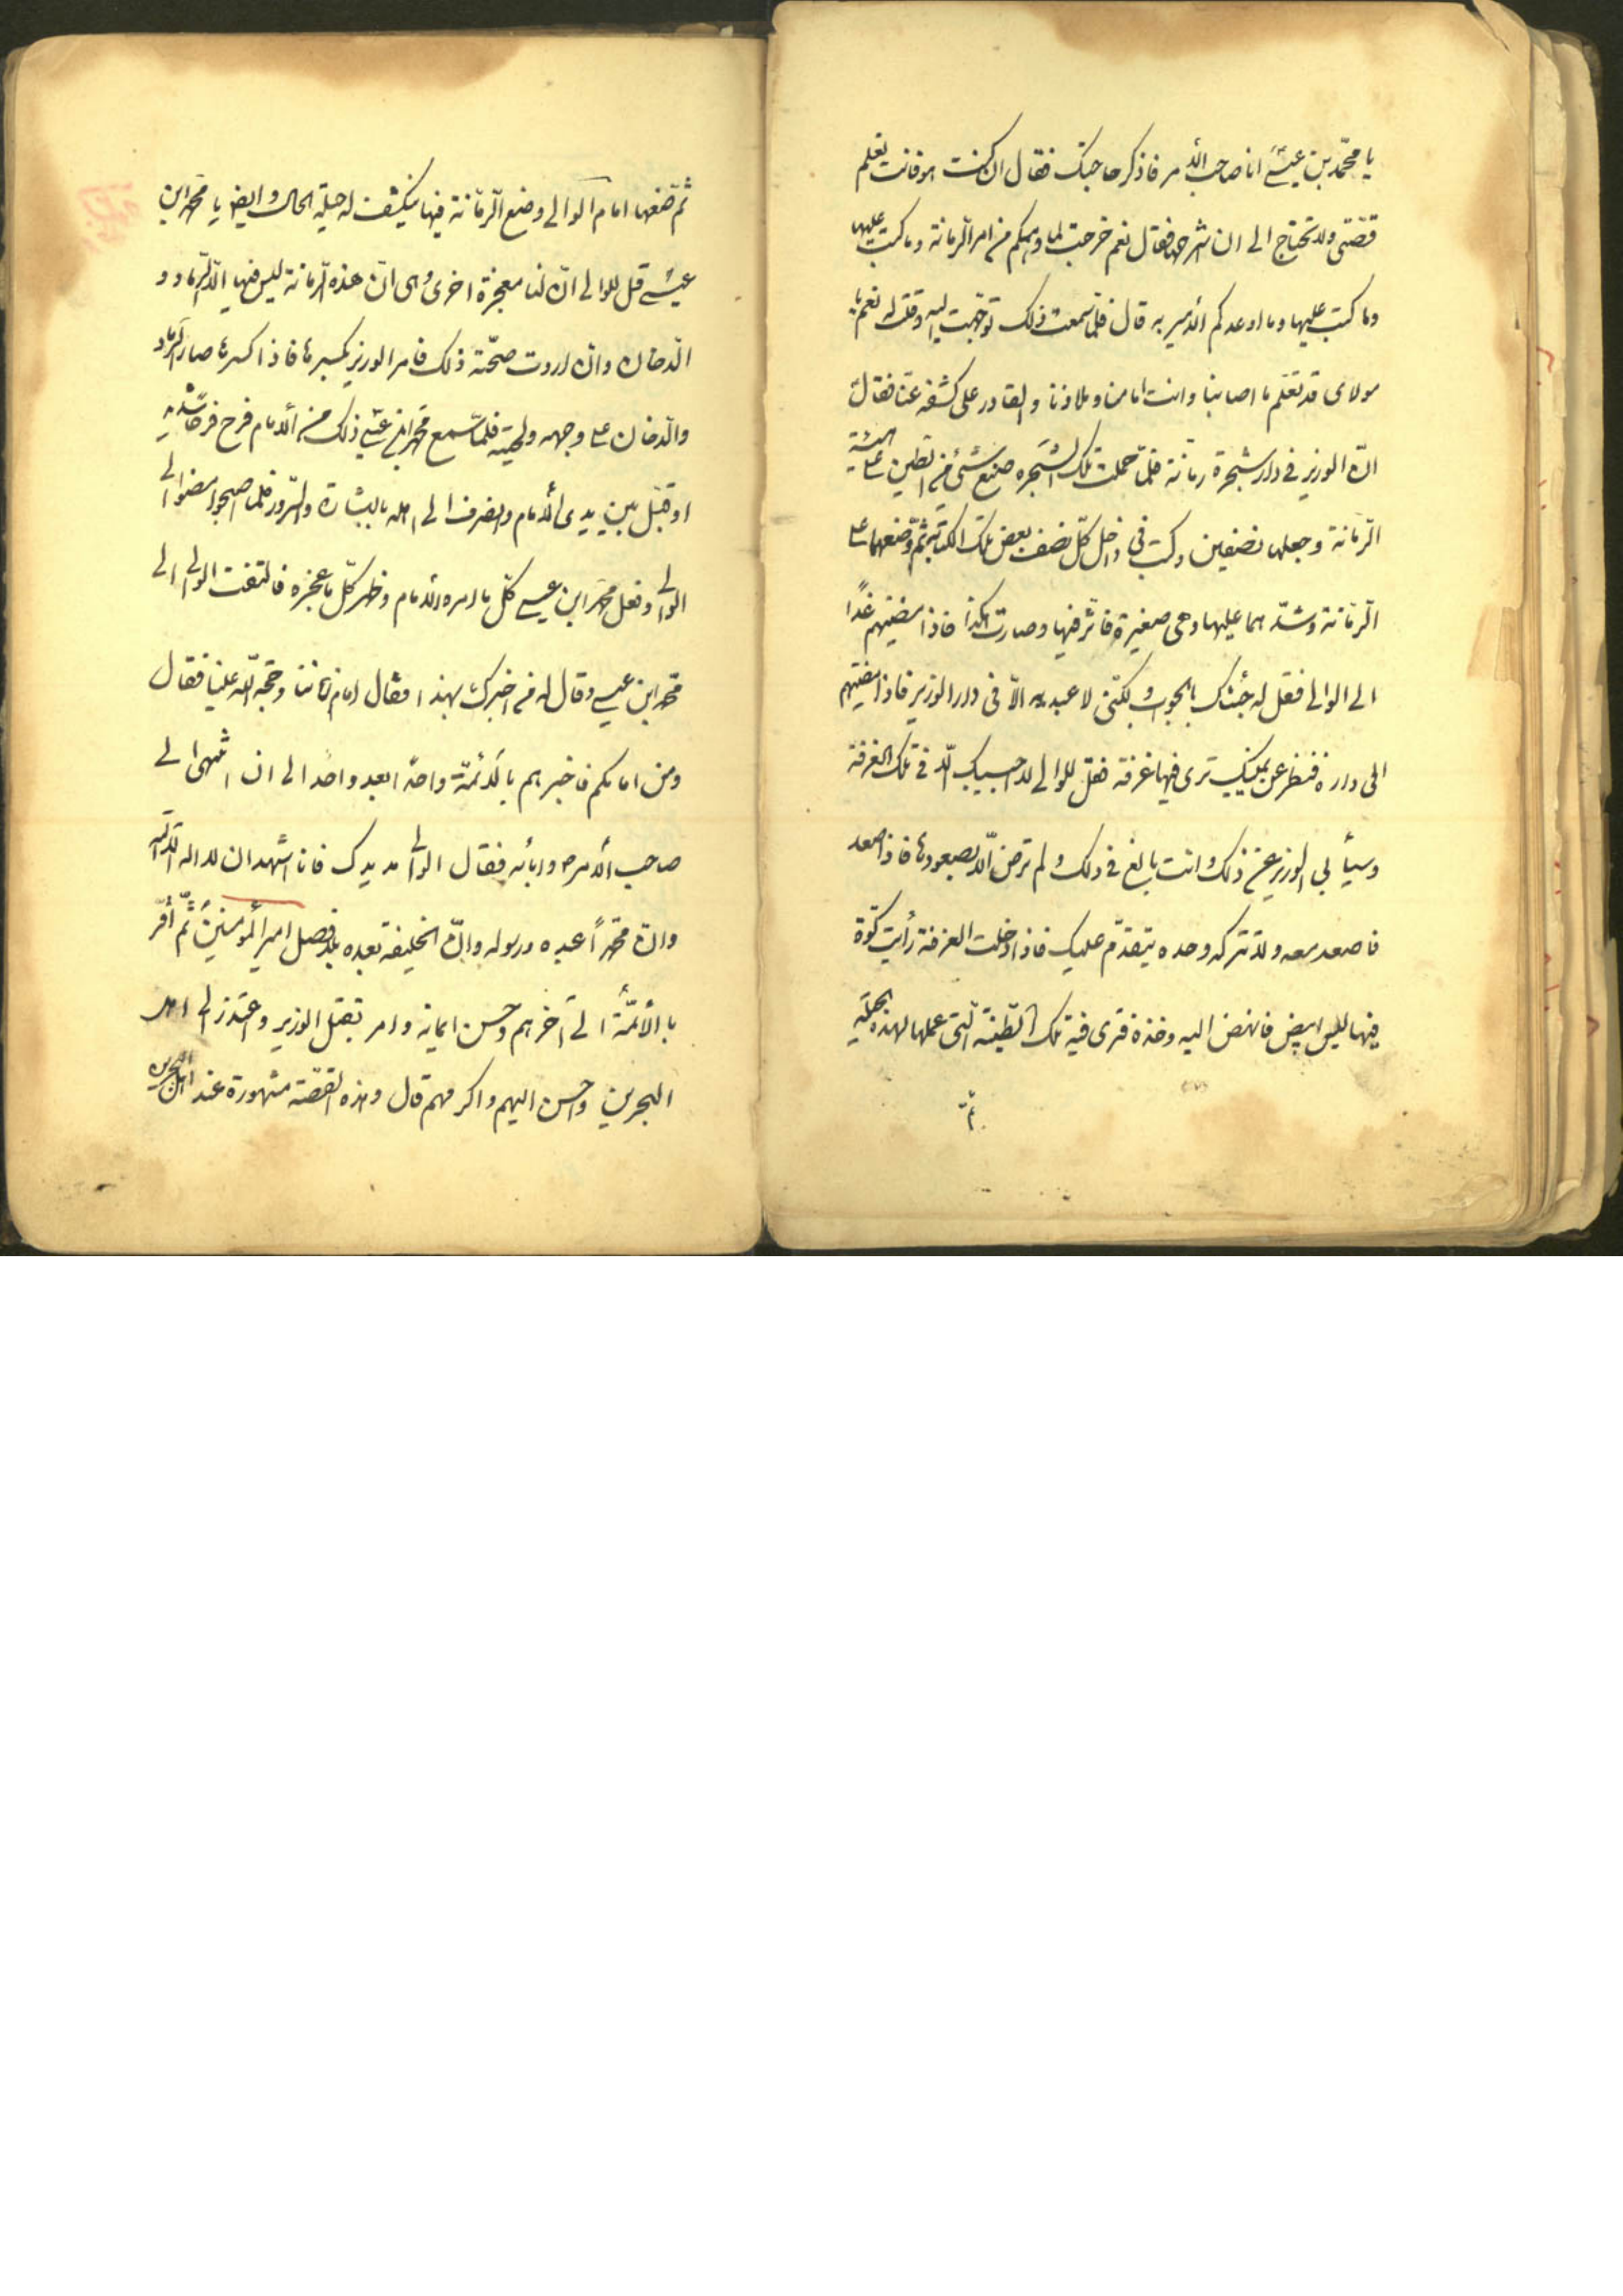 يا محمّد بن عيسى انا صاحب الأمر فاذكر حاجتك فقال ان كنت هو فانت تعلم
قصّتى ولا تحتاج الى ان اشرحها فقال نعم خرجت لما دهمكم من امر الرمانة وما كتب عليها
وما كتب عليها وما اوعدكم الأمير به قال فلمّا سمعت ذلك توجّهت اليه وقلت له نعم يا
مولاى قد تعلم ما اصابنا وانت امامنا وملاذنا والقادر على كشفه عنّا فقال
انّ الوزير فى داره شجرة رمانة فلمّا حملت تلك الشجرة صنع شئ من الطين على هيئة
الرّمانة وجعلها نصفين وكتب فى داخل كلّ نصف بعض تلك الكتابة ثمّ وضعهما على
الرّمانة وشدّهما عليها وهى صغيرة فاثّر فيها وصارت هكذا فاذا مضيتم غدًا
الى الوالى فقل له جئتك بالجواب ولكنّى لا ابديه الّا فى دار الوزير فاذا مضيتم
الى داره فانظر عن يمينك ترى فيها غرفة فقل للوالى لا اجيبك الّا فى تلك الغرفة
وسيأبى الوزير عن ذلك وانت بالغ فى ذلك ولم ترض الّا بصعودها فاذا صعد
فاصعد معه ولا تتركه وحده يتقدّم عليك فاذا دخلت الغرفة رأيت كوّة
فيها كيس ابيض فانهض اليه وخذه فترى فيه تلك الطينة الّتى عملها لهذه الحيلة
ثمّ
ثمّ ضعها امام الوالى وضع الرّمّانة فيها ينكشف له جليّة الحال وايضا يا محمّد ابن
عيسى قل للوالى انّ لنا معجزة اخرى وهى انّ هذه الرّمانة ليس فيها الّا الرّماد و
الدّخان وان اردت صحّة ذلك فامر الوزير بكسرها فاذا كسرها صار الرّماد
والدّخان على وجهه ولحيته فلمّا سمع محمّد ابن عيسى ذلك من الأمام فرح فرحا شديد
او قبّل بين يدى الأمام وانصرف الى اهله بالبشارة والسّرور فلمّا اصبحوا مضوا الى
الوالى وفعل محمّد ابن عيسى كلّ ما امره الأمام وظهر كلّ ما اخبره فالتفت الوالى الى
محمّد ابن عيسى وقال له من اخبرك بهذا فقال امام زماننا وحجّة اللّه علينا فقال
ومن امامكم فاخبرهم بالأئمّة واحدًا بعد واحد الى ان انتهى الى
صاحب الأمر وابائه فقال الوالى مدّ يدك فانا اشهد ان لا اله الّا اللّه
وانّ محمّدًا عبده ورسوله وانّ الخليفة بعده بلا فصل امير المؤمنين ثمّ أقرّ
با الأئمّة الى آخرهم وحسن ايمانه وامر بقتل الوزير واعتذر الى اهل
البحرين واحسن اليهم واكرمهم قال وهذه القصّة مشهورة عند اهل البحرين